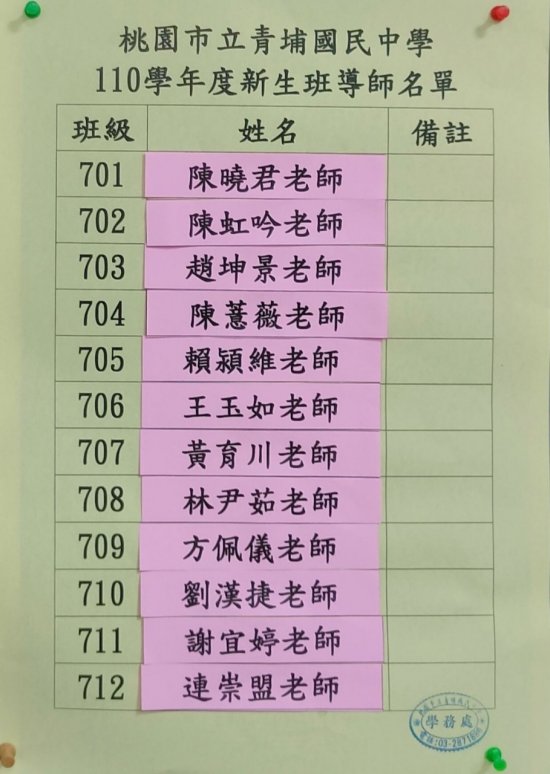 桃園市立青埔國民中學
110學年度新生班導師名單
班級 姓名 備註
701 陳曉君老師
702 陳虹吟老師
703 趙坤景老師
704 陳薏薇老師
705 賴潁維老師
706 王玉如老師
707 黃育川老師
708 林尹茹老師
709 方佩儀老師
710 劉漢捷老師
711 謝宜婷老師
712 連崇盟老師
學務處